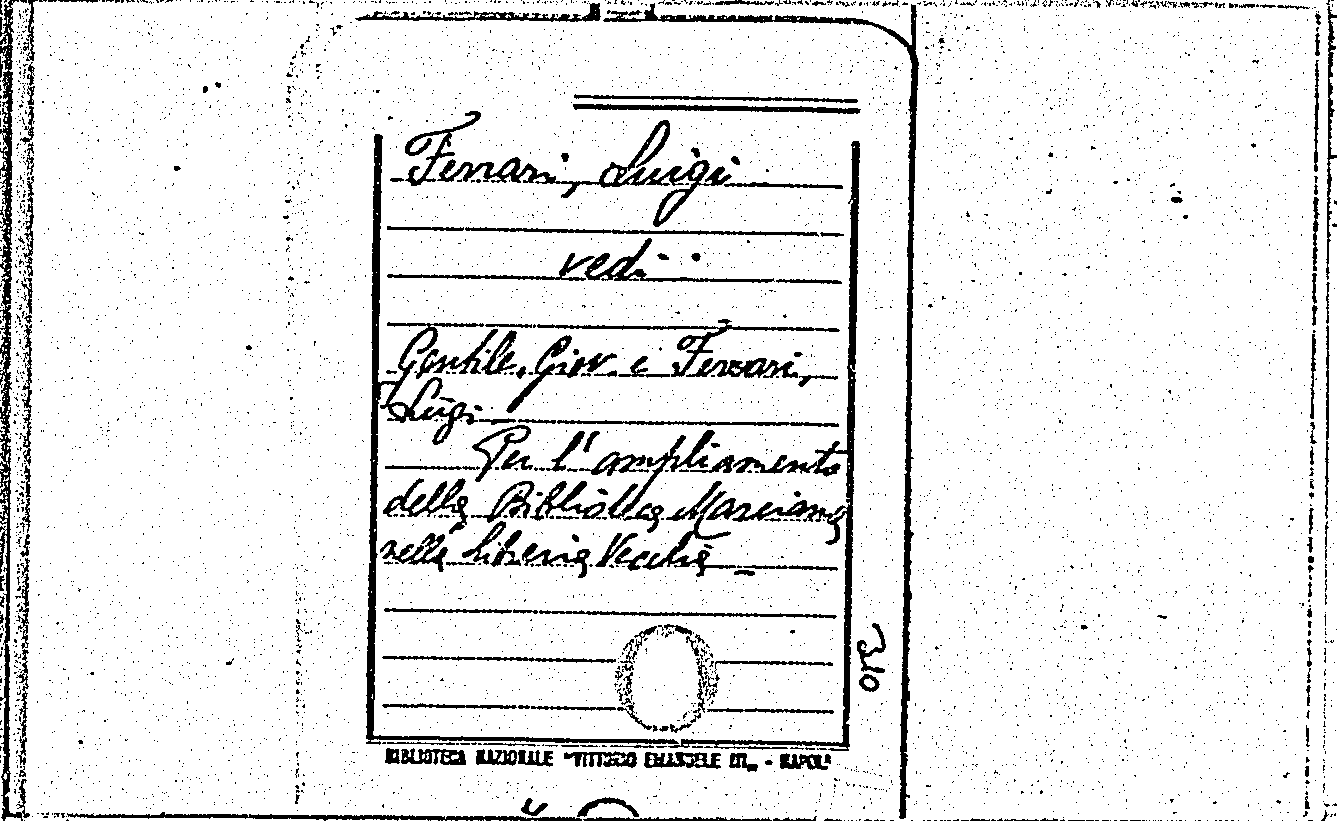 Ferrari, Luigi
vedi
Gentile, Giov. e Ferrari,
Luigi
Per l'ampliamento
della Biblioteca Marciana
nella Libreria Vecchia
310
BIBLIOTECA NAZIONALE "VITTORIO EMANUELE III" - NAPOLI